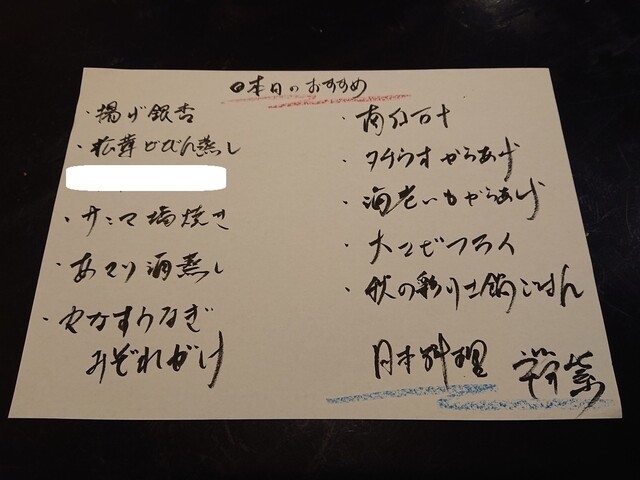 本日のおすすめ
・揚げ銀杏
・松茸どびん蒸し
・サンマ塩焼き
・あさり酒蒸し
みぞれがけ
・南瓜万十
・タチウオからあげ
・海老いもからあげ
・大エビフライ
・秋の彩り土鍋ごはん
日本料理